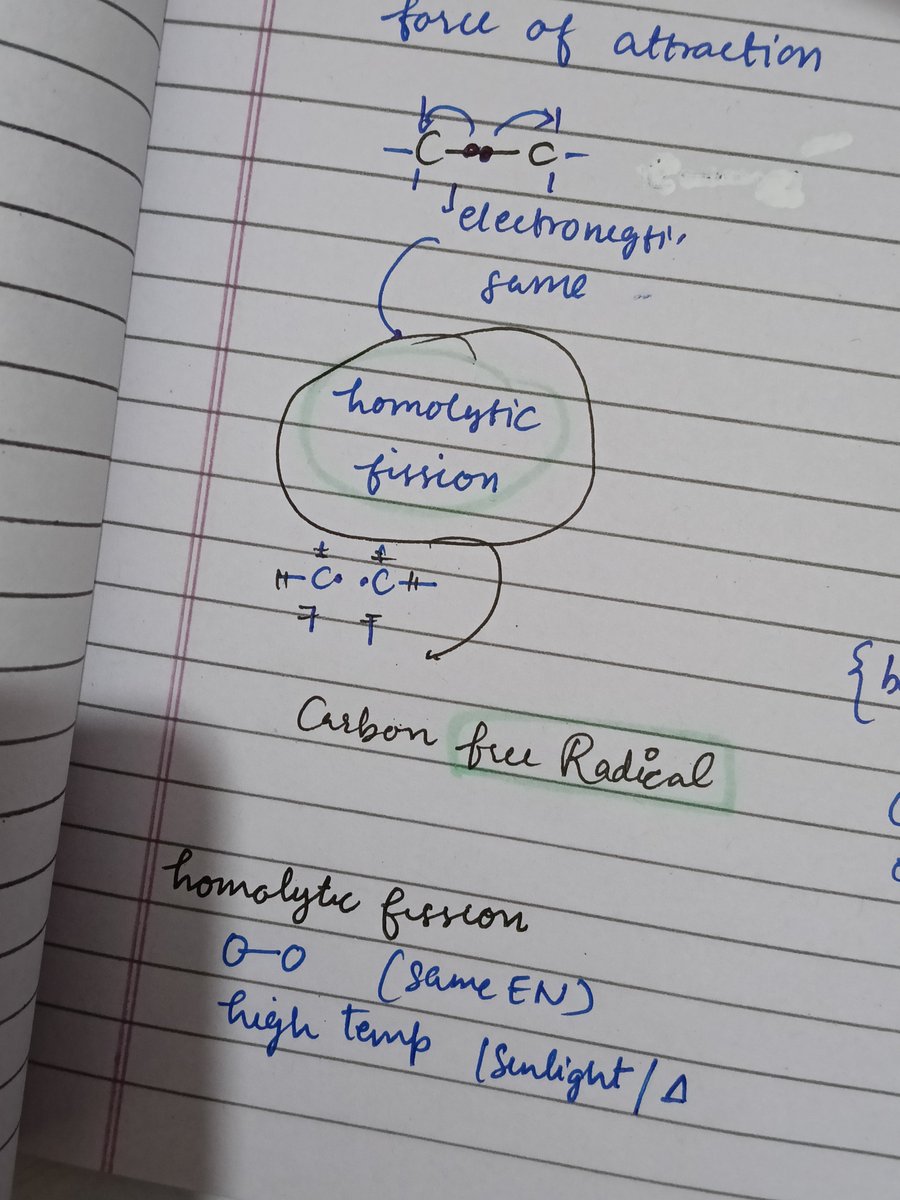 force of attraction
–C–••–C–
electronegti
same
homolytic
fission
H–C• •C–H
Carbon free Radical
{b
homolytic fission
O–O (same EN)
high temp /Sunlight/Δ